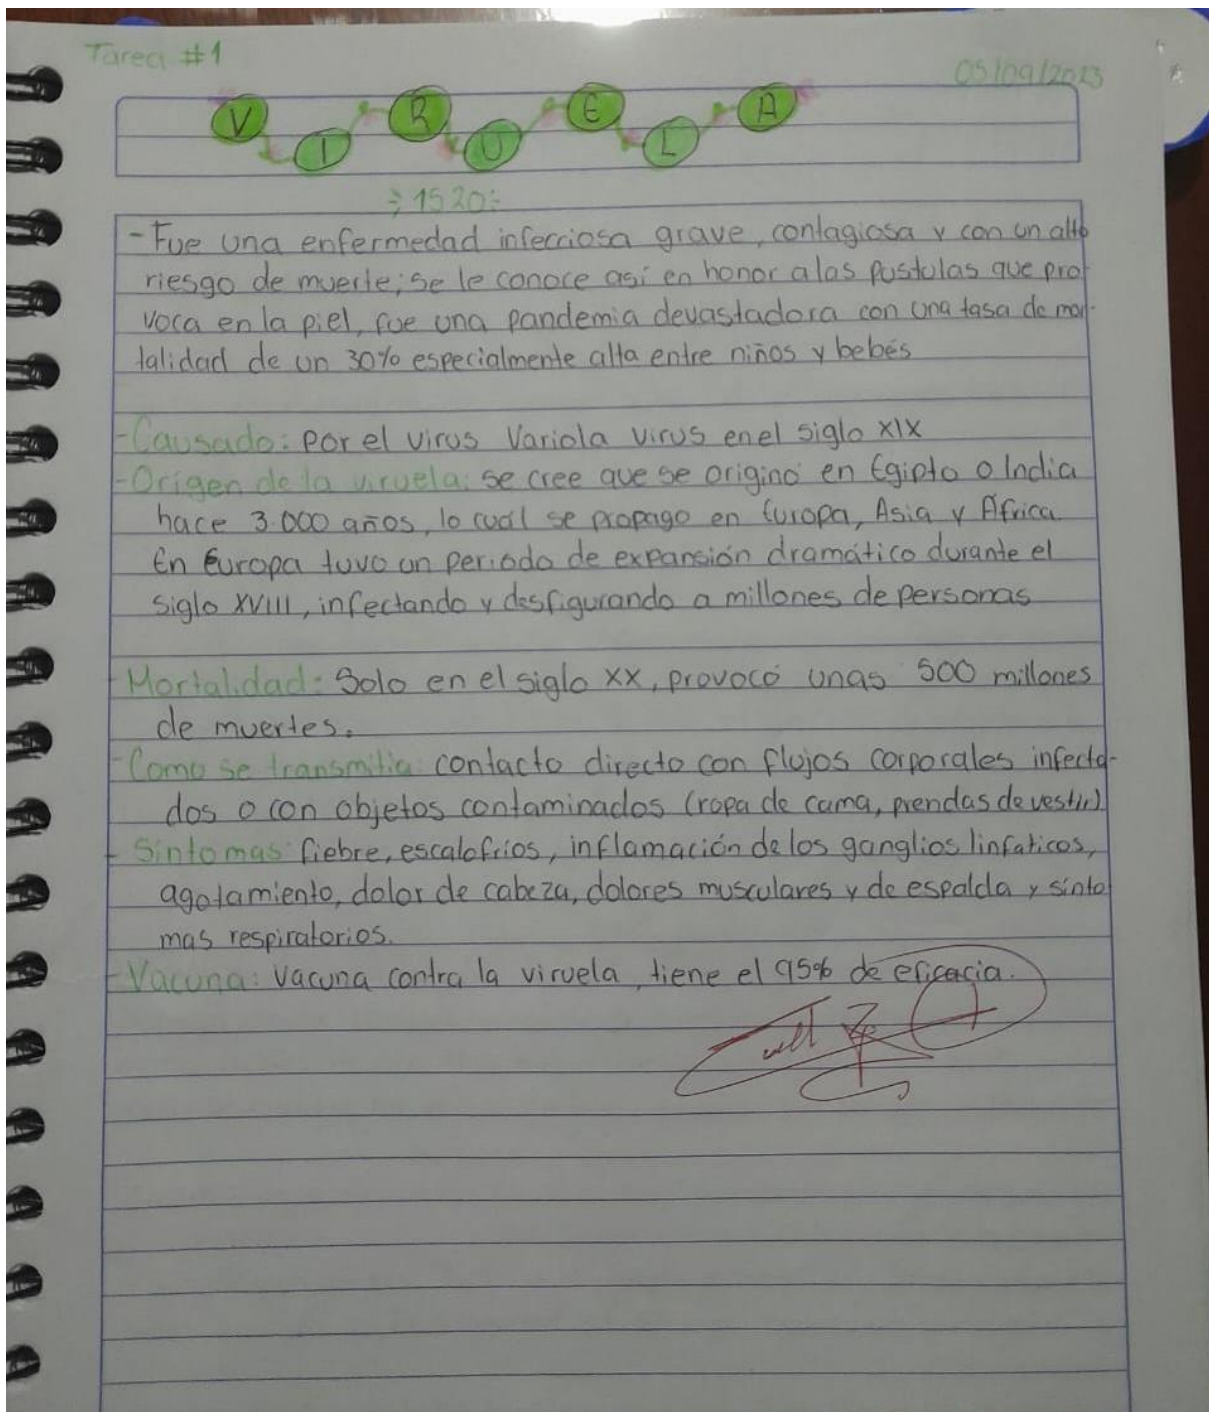 Tarea #1
05/09/2023
VIRUELA
÷1520÷
-Fue una enfermedad infecciosa grave, contagiosa y con un alto
riesgo de muerte; se le conoce así en honor a las pustulas que pro-
voca en la piel, fue una pandemia devastadora con una tasa de mor-
talidad de un 30% especialmente alta entre niños y bebés
-Causado: por el virus Variola virus en el siglo XIX
-Origen de la viruela: se cree que se origino en Egipto o India
hace 3.000 años, lo cuál se propago en Europa, Asia y África.
En Europa tuvo un periodo de expansión dramático durante el
siglo XVIII, infectando y desfigurando a millones de personas
-Mortalidad: Solo en el siglo XX, provocó unas 500 millones
de muertes.
-Como se transmitia: contacto directo con flujos corporales infecta-
dos o con objetos contaminados (ropa de cama, prendas de vestir)
- Sintomas: fiebre, escalofrios, inflamación de los ganglios linfaticos,
agotamiento, dolor de cabeza, dolores musculares y de espalda y sinto
mas respiratorios.
-Vacuna: Vacuna contra la viruela, tiene el 95% de eficacia.